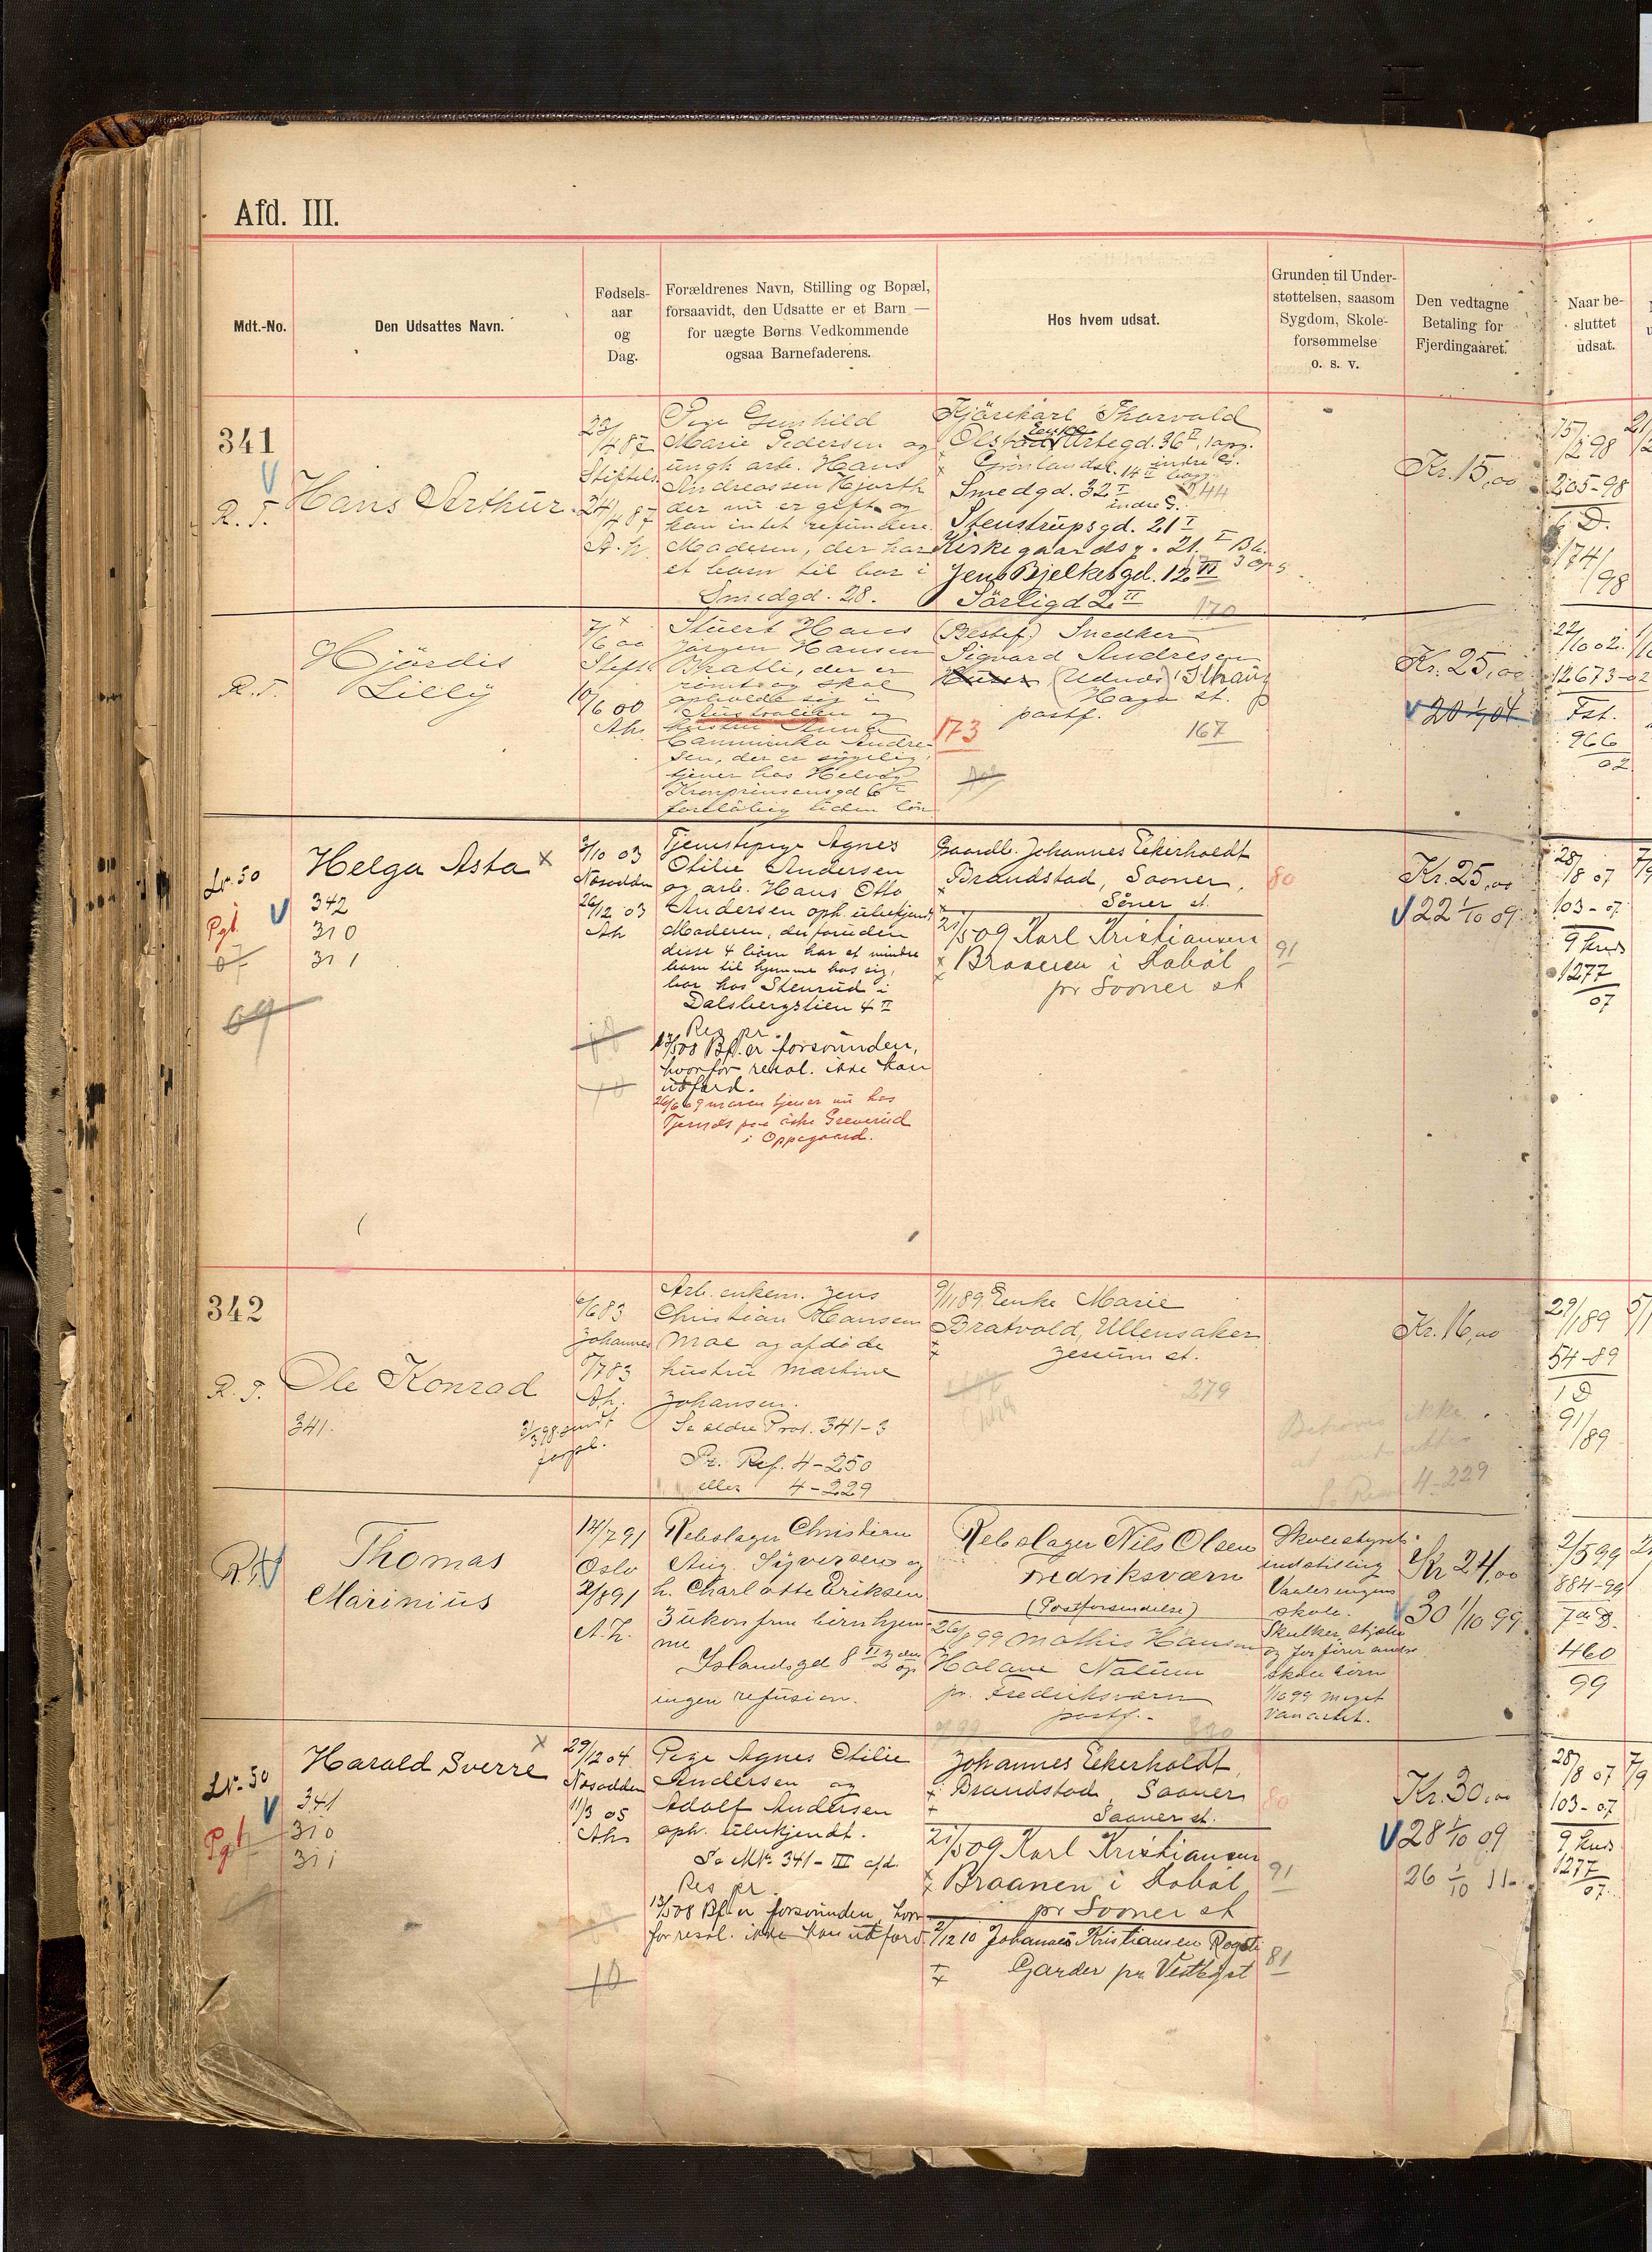 Afd. III.
Mdt.-No.
Den Udsattes Navn.
Fødsels-
aar
og
Dag.
Forældrenes Navn, Stilling og Bopæl,
forsaavidt, den Udsatte er et Barn —
for uægte Børns Vedkommende
ogsaa Barnefaderens.
Hos hvem udsat.
Grunden til Under-
støttelsen, saasom
Sygdom, Skole-
forsømmelse
o. s. v.
Den vedtagne
Betaling for
Fjerdingaaret.
Naar be-
sluttet
udsat.
341
R. T.
Hans Arthur
23/4 87
Stiftels.
24/4 87
A. h.
Pige Gunhild
Marie Pedersen og
ungk. arb. Hans
Andreassen Hjorth
der nu er gift og
kan intet refundere
Moderen, der har
et barn til bor i
Smedgd. 28.
Kjørekarl Thorvald
Olstad Urtegd. 36 I, 1 opg.
Grønlandsl. 14 II
indre G.
Smedgd. 32 I
144
indre G.
Stenstrupsgd. 21 I
Kirkegaardsg. 21 I
Jens Bjelkesgd. 12 III
Sørligd 2 II
170
Kr. 15,00
15/12 98
205-98
1 D.
174/98
R. T.
Hjördis
Lilly
7/6 00
Stift.
10/6 00
Ah.
Stuert Hans
Jørgen Hansen
Bratli, der er
rømt og skal
opholde sig i
Australien og
hustru Anna
Camminka Andre-
sen, der er sygelig,
tjener hos
Kronprinsensgd 6
foreløbig uden løn
(Bestef.) Snedker
Sigvard Andresen
(Udnæs) Strøm
Haga st.
postf.
173
167
Kr. 25,00
20 1/1 04
22/10 02
12673-02
Fst.
966
02
Lr. 50
Pgt
07
69
Helga Asta x
342
310
311
3/10 03
Næsodden
26/12 03
Ah
Tjenestepige Agnes
Otilie Andersen
og arb. Hans Otto
Andersen oph. ubekjend
Moderen, der foruden
disse 4 børn har et mindre
barn til hjemme hos sig,
bor hos Stenrud i
Dalsbergstien 4 II
Res pr.
13/5 08 Bf. er forsvunden,
hvorfor resol. ikke kan
utfærd.
26/6 09 moren tjener nu hos
i Oppegaard.
Gaardb. Johannes Eikerholdt
Brandstad, Sooner,
Sóner st.
80
21/5 09 Karl Kristiansen
Braaten i Hobøl
pr Sooner st
91
Kr. 25,00
22 1/10 09
28/8 07
103-07
1277
07
342
R. T.
Ole Konrad
341.
6/6 83
Johannes
8/7 83
Ah.
Arb. enkem. Jens
Christian Hansen
Moe og afdøde
hustru Martine
Johansen.
Se ældre Prot. 341-3
Pr. Ref. 4-250
eller 4-229
9/11 89. Enke Marie
Bratvold, Ullensaker
Jessum st.
279
Behøves ikke
4-229
Kr. 16,00
29/1 89
54-89
1 D
91/89
Thomas
Marinius
14/7 91
Oslo
2/8 91
A. h.
Rebslager Christian
Aug. Syversen og
h. Charlotte Eriksen
3 ukonfirm. børn hjem-
me
Islandsgd 8 II
ingen refusion.
Rebslager Nils Olsen
Fredriksværn
(Postforsendelse)
26/ 99 Mathis Hansen
Holane Natum
pr. Fredriksværn
postf.
Skolestyrets
indstilling
Vaalerengens
skole.
Skulker, stjæler
og forfører andre
skole børn
1/10 99 meget
vanartet.
Kr 24,00
30 1/10 99
2/5 99
884-99
7de D.
460
99
Lr. 50
Pgt
Harald Sverre x
341
310
311
29/12 04
Næsodden
11/3 05
Ah
Pige Agnes Otilie
Andersen og
Adolf Andersen
oph. ubekjendt.
Se Mk. 341-III afd.
Res pr.
13/5 08 Bf er forsvunden, hvor-
for resol. ikke kan utfærd.
Johannes Eikerholdt,
Brandstad, Saaner
Saaner st.
80
21/5 09 Karl Kristiansen
Braanen i Hobøl
pr Sooner st
91
2/12 10 Johannes Kristiansen
Garder pr. Vestby st
81
Kr. 30,00
28 1/10 09
26 1/10 11
28/8 07
103-07
1277
07